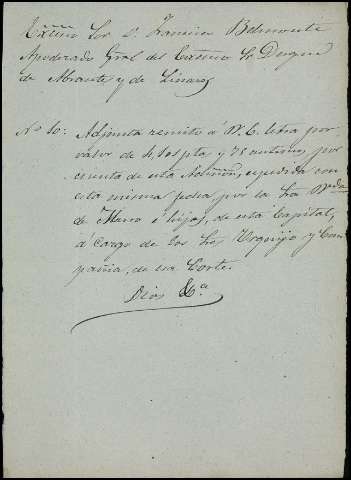 Excmo Sor D. Francisco Belmonte
Apoderado Gral del Excmo Sr Duque
de Abrantes y de Linares
Nº 10: Adjunta remito á V. E. letra por
valor de 4,501 pta y 78 centimos por
cuenta de esta Admon, espedida con
esta misma fecha por la Sra Vda
de Mano é hijos, de esta Capital,
á cargo de los Sres Urquijo y Com
pañia, de esa Corte.
Dios &a